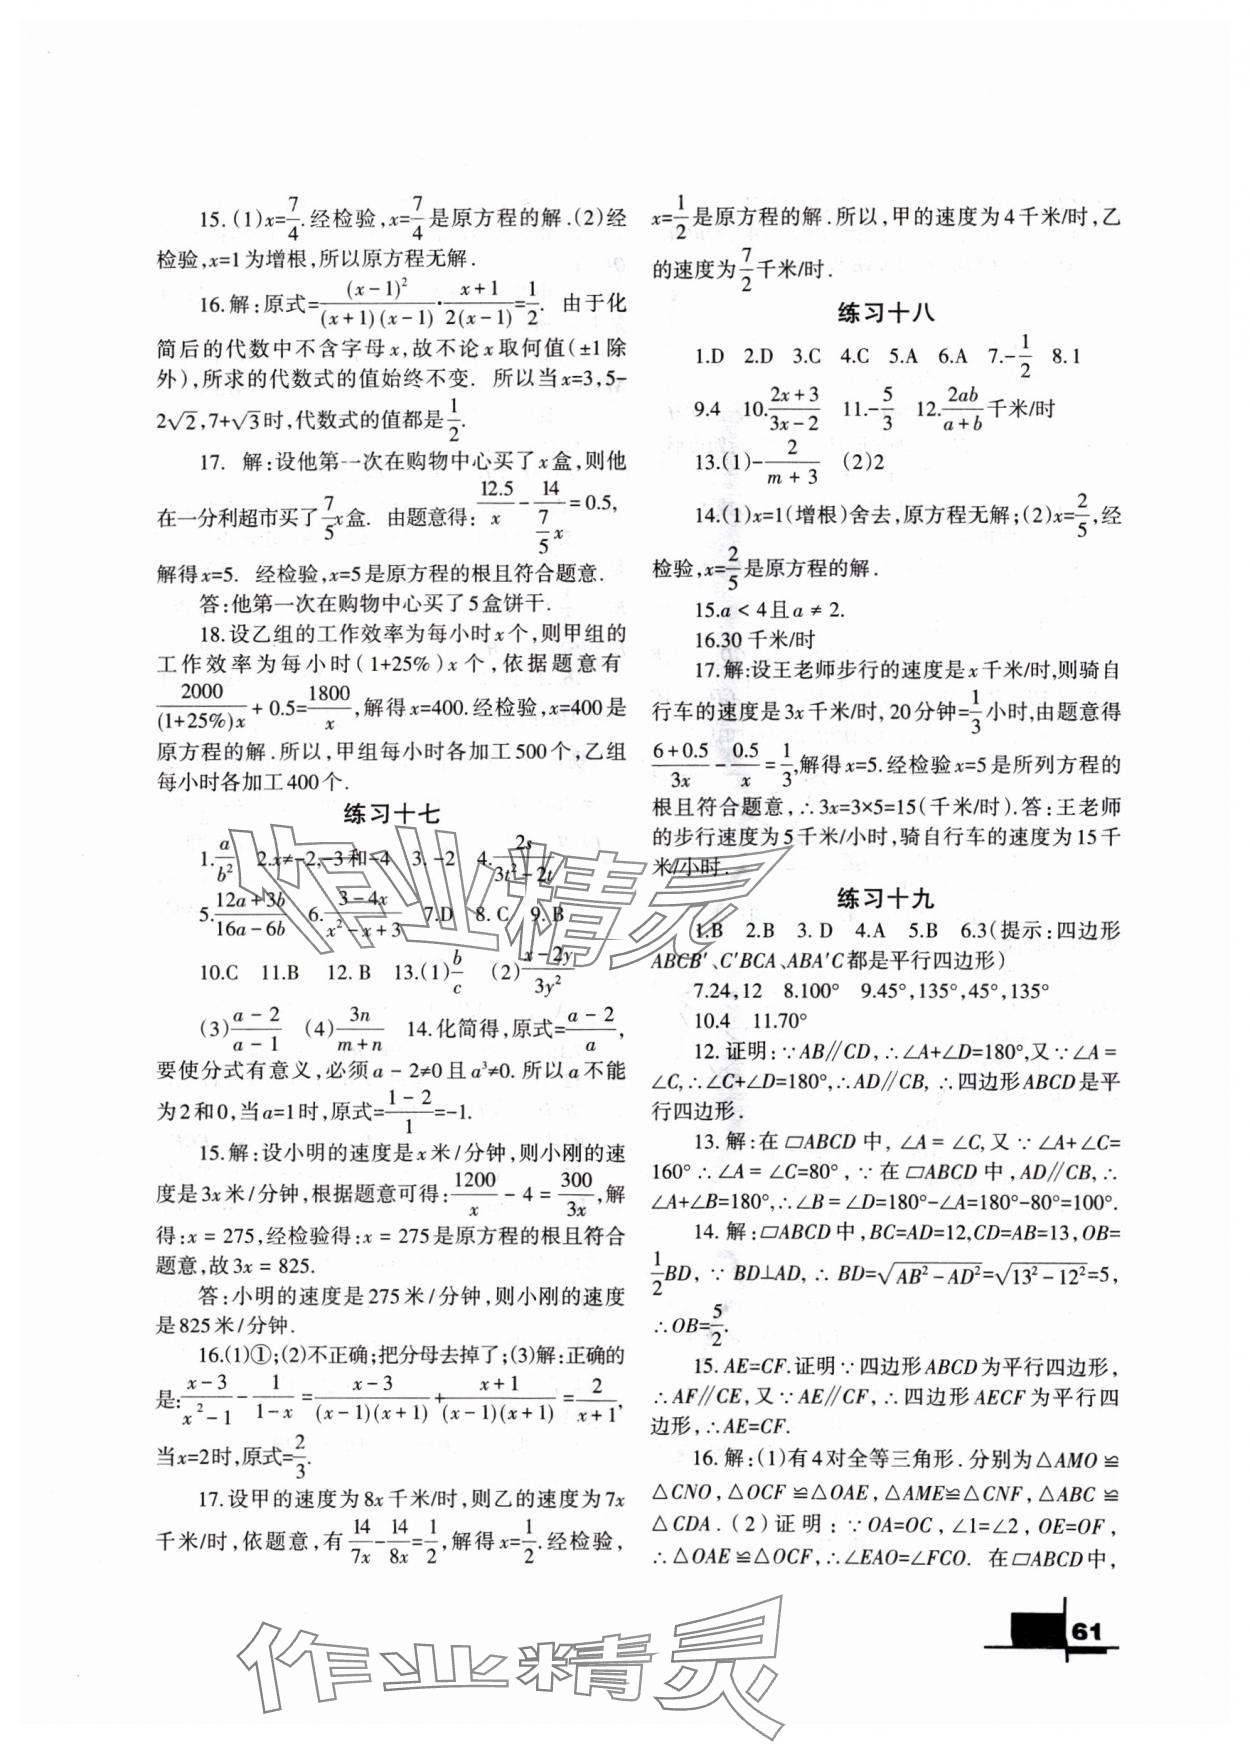 15.(1)x=7/4.经检验,x=7/4是原方程的解.(2)经
检验,x=1为增根,所以原方程无解.
16.解:原式=(x-1)²/(x+1)(x-1)·x+1/2(x-1)=1/2. 由于化
简后的代数中不含字母x,故不论x取何值(±1除
外),所求的代数式的值始终不变. 所以当x=3,5-
2√2,7+√3时,代数式的值都是1/2.
17. 解:设他第一次在购物中心买了x盒,则他
在一分利超市买了7/5x盒. 由题意得:12.5/x-14/(7/5x)=0.5,
解得x=5. 经检验,x=5是原方程的根且符合题意.
答:他第一次在购物中心买了5盒饼干.
18.设乙组的工作效率为每小时x个,则甲组的
工作效率为每小时(1+25%)x个,依据题意有
2000/(1+25%)x+0.5=1800/x,解得x=400.经检验,x=400是
原方程的解.所以,甲组每小时各加工500个,乙组
每小时各加工400个.
练习十七
1.a/b² 2.x≠-2,-3和-4 3.-2 4.2s/3t²-2t
5.12a+3b/16a-6b 6.3-4x/x²-x+3 7.D 8.C 9.B
10.C 11.B 12.B 13.(1)b/c (2)x-2y/3y²
(3)a-2/a-1 (4)3n/m+n 14.化简得,原式=a-2/a,
要使分式有意义,必须a-2≠0且a³≠0.所以a不能
为2和0,当a=1时,原式=1-2/1=-1.
15.解:设小明的速度是x米/分钟,则小刚的速
度是3x米/分钟,根据题意可得:1200/x-4=300/3x,解
得:x=275,经检验得:x=275是原方程的根且符合
题意,故3x=825.
答:小明的速度是275米/分钟,则小刚的速度
是825米/分钟.
16.(1)①;(2)不正确;把分母去掉了;(3)解:正确的
是:x-3/x²-1-1/1-x=x-3/(x-1)(x+1)+x+1/(x-1)(x+1)=2/x+1,
当x=2时,原式=2/3.
17.设甲的速度为8x千米/时,则乙的速度为7x
千米/时,依题意,有14/7x-14/8x=1/2,解得x=1/2.经检验,
x=1/2是原方程的解.所以,甲的速度为4千米/时,乙
的速度为7/2千米/时.
练习十八
1.D 2.D 3.C 4.C 5.A 6.A 7.-1/2 8.1
9.4 10.2x+3/3x-2 11.-5/3 12.2ab/a+b千米/时
13.(1)-2/m+3 (2)2
14.(1)x=1(增根)舍去,原方程无解;(2)x=2/5,经
检验,x=2/5是原方程的解.
15.a<4且a≠2.
16.30千米/时
17.解:设王老师步行的速度是x千米/时,则骑自
行车的速度是3x千米/时,20分钟=1/3小时,由题意得
6+0.5/3x-0.5/x=1/3,解得x=5.经检验x=5是所列方程的
根且符合题意,∴3x=3×5=15(千米/时).答:王老师
的步行速度为5千米/小时,骑自行车的速度为15千
米/小时.
练习十九
1.B 2.B 3.D 4.A 5.B 6.3(提示:四边形
ABCB′、C′BCA、ABA′C都是平行四边形)
7.24,12 8.100° 9.45°,135°,45°,135°
10.4 11.70°
12.证明:∵AB∥CD,∴∠A+∠D=180°,又∵∠A=
∠C,∴∠C+∠D=180°,∴AD∥CB,∴四边形ABCD是平
行四边形.
13.解:在▱ABCD中,∠A=∠C,又∵∠A+∠C=
160°∴∠A=∠C=80°,∵在▱ABCD中,AD∥CB,∴
∠A+∠B=180°,∴∠B=∠D=180°-∠A=180°-80°=100°.
14.解:▱ABCD中,BC=AD=12,CD=AB=13,OB=
1/2BD,∵BD⊥AD,∴BD=√AB²-AD²=√13²-12²=5,
∴OB=5/2.
15.AE=CF.证明∵四边形ABCD为平行四边形,
∴AF∥CE,又∵AE∥CF,∴四边形AECF为平行四
边形,∴AE=CF.
16.解:(1)有4对全等三角形.分别为△AMO≌
△CNO,△OCF≌△OAE,△AME≌△CNF,△ABC≌
△CDA.(2)证明:∵OA=OC,∠1=∠2,OE=OF,
∴△OAE≌△OCF,∴∠EAO=∠FCO. 在▱ABCD中,
61
作业精灵
作业精灵